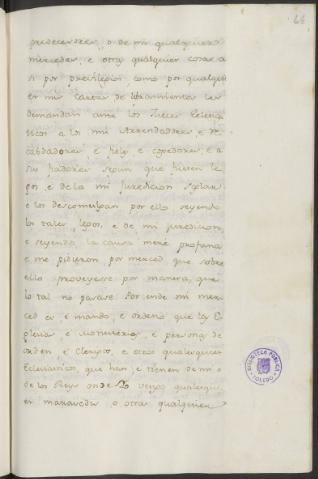 66
predecesores, o de mi qualquiera
mercedes, e otras qualquier cosas a
si por previlegios como por qualquier
en mi Cartas de libramientos les
demandan ante los Jueces Eclesia
sticos a los mis Arrendadores e Re
cabdadores e fieles e cojedores, e a
sus fiadores segun que fuesen le
gos, e de la mi Juredicion Seglar
e los descomulgan por ello seyendo
los tales, legos, e de mi juredicion,
e seyendo la causa mere profana
e me pidieron por merced que sobre
ello proveyese por manera, que
lo tal no pasase. Por ende mi mer
ced es e mando, e ordeno que las Y
glesias e Monesterios, e personas de
orden, e Clerigos, e otros qualesquier
Eclesiasticos, que han, e tienen de mi o
de los Reyes onde Yo vengo qualesquier
maravedis o otras qualesquier
BIBLIOTECA PUBLICA
TOLEDO